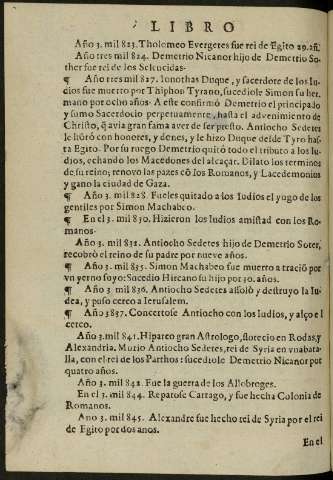 LIBRO
Año 3. mil 823. Tholomeo Evergetes fue rei de Egito 29. añ.
Año tres mil 824. Demetrio Nicanor hijo de Demetrio So-
ther fue rei de los Seleucidas.
¶ Año tres mil 827. Ionothas Duque, y sacerdote de los Iu-
dios fue muerto por Thiphon Tyrano, sucediole Simon su her
mano por ocho años. A este confirmó Demetrio el principado
y sumo Sacerdocio perpetuamente, hasta el advenimiento de
Christo, q̃ avia gran fama aver de ser presto. Antiocho Sedetes
le hõró con honores, y dones, y le hizo Duque desde Tyro has-
ta Egito. Por su ruego Demetrio quitó todo el tributo a los Iu-
dios, echando los Macedones del alcaçar. Dilato los terminos
de su reino; renovo las pazes cõ los Romanos, y Lacedemonios
y gano la ciudad de Gaza.
¶ Año 3. mil 828. Fueles quitado a los Iudios el yugo de los
gentiles por Simon Machabeo.
¶ En el 3. mil 830. Hizieron los Iudios amistad con los Ro-
manos.
Año 3. mil 831. Antiocho Sedetes hijo de Demetrio Soter,
recobrò el reino de su padre por nueve años.
¶ Año 3. mil 835. Simon Machabeo fue muerto a traciõ por
vn yerno suyo: Sucedio Hircano su hijo por 30. años.
¶ Año 3. mil 836. Antiocho Sedetes assoló y destruyo la Iu-
dea, y puso cerco a Ierusalem.
¶ Año 3837. Concertose Antiocho con los Iudios, y alço el
cerco.
Año 3. mil 841. Hiparco gran Astrologo, florecio en Rodas, y
Alexandria. Murio Antiocho Sedetes, rei de Syria en vnabata-
lla, con el rei de los Parthos: sucediole Demetrio Nicanor por
quatro años.
Año 3. mil 842. Fue la guerra de los Allobroges.
En el 3. mil 844. Reparose Cartago, y fue hecha Colonia de
Romanos.
Año 3. mil 845. Alexandre fue hecho rei de Syria por el rei
de Egito por dos anos.
En el